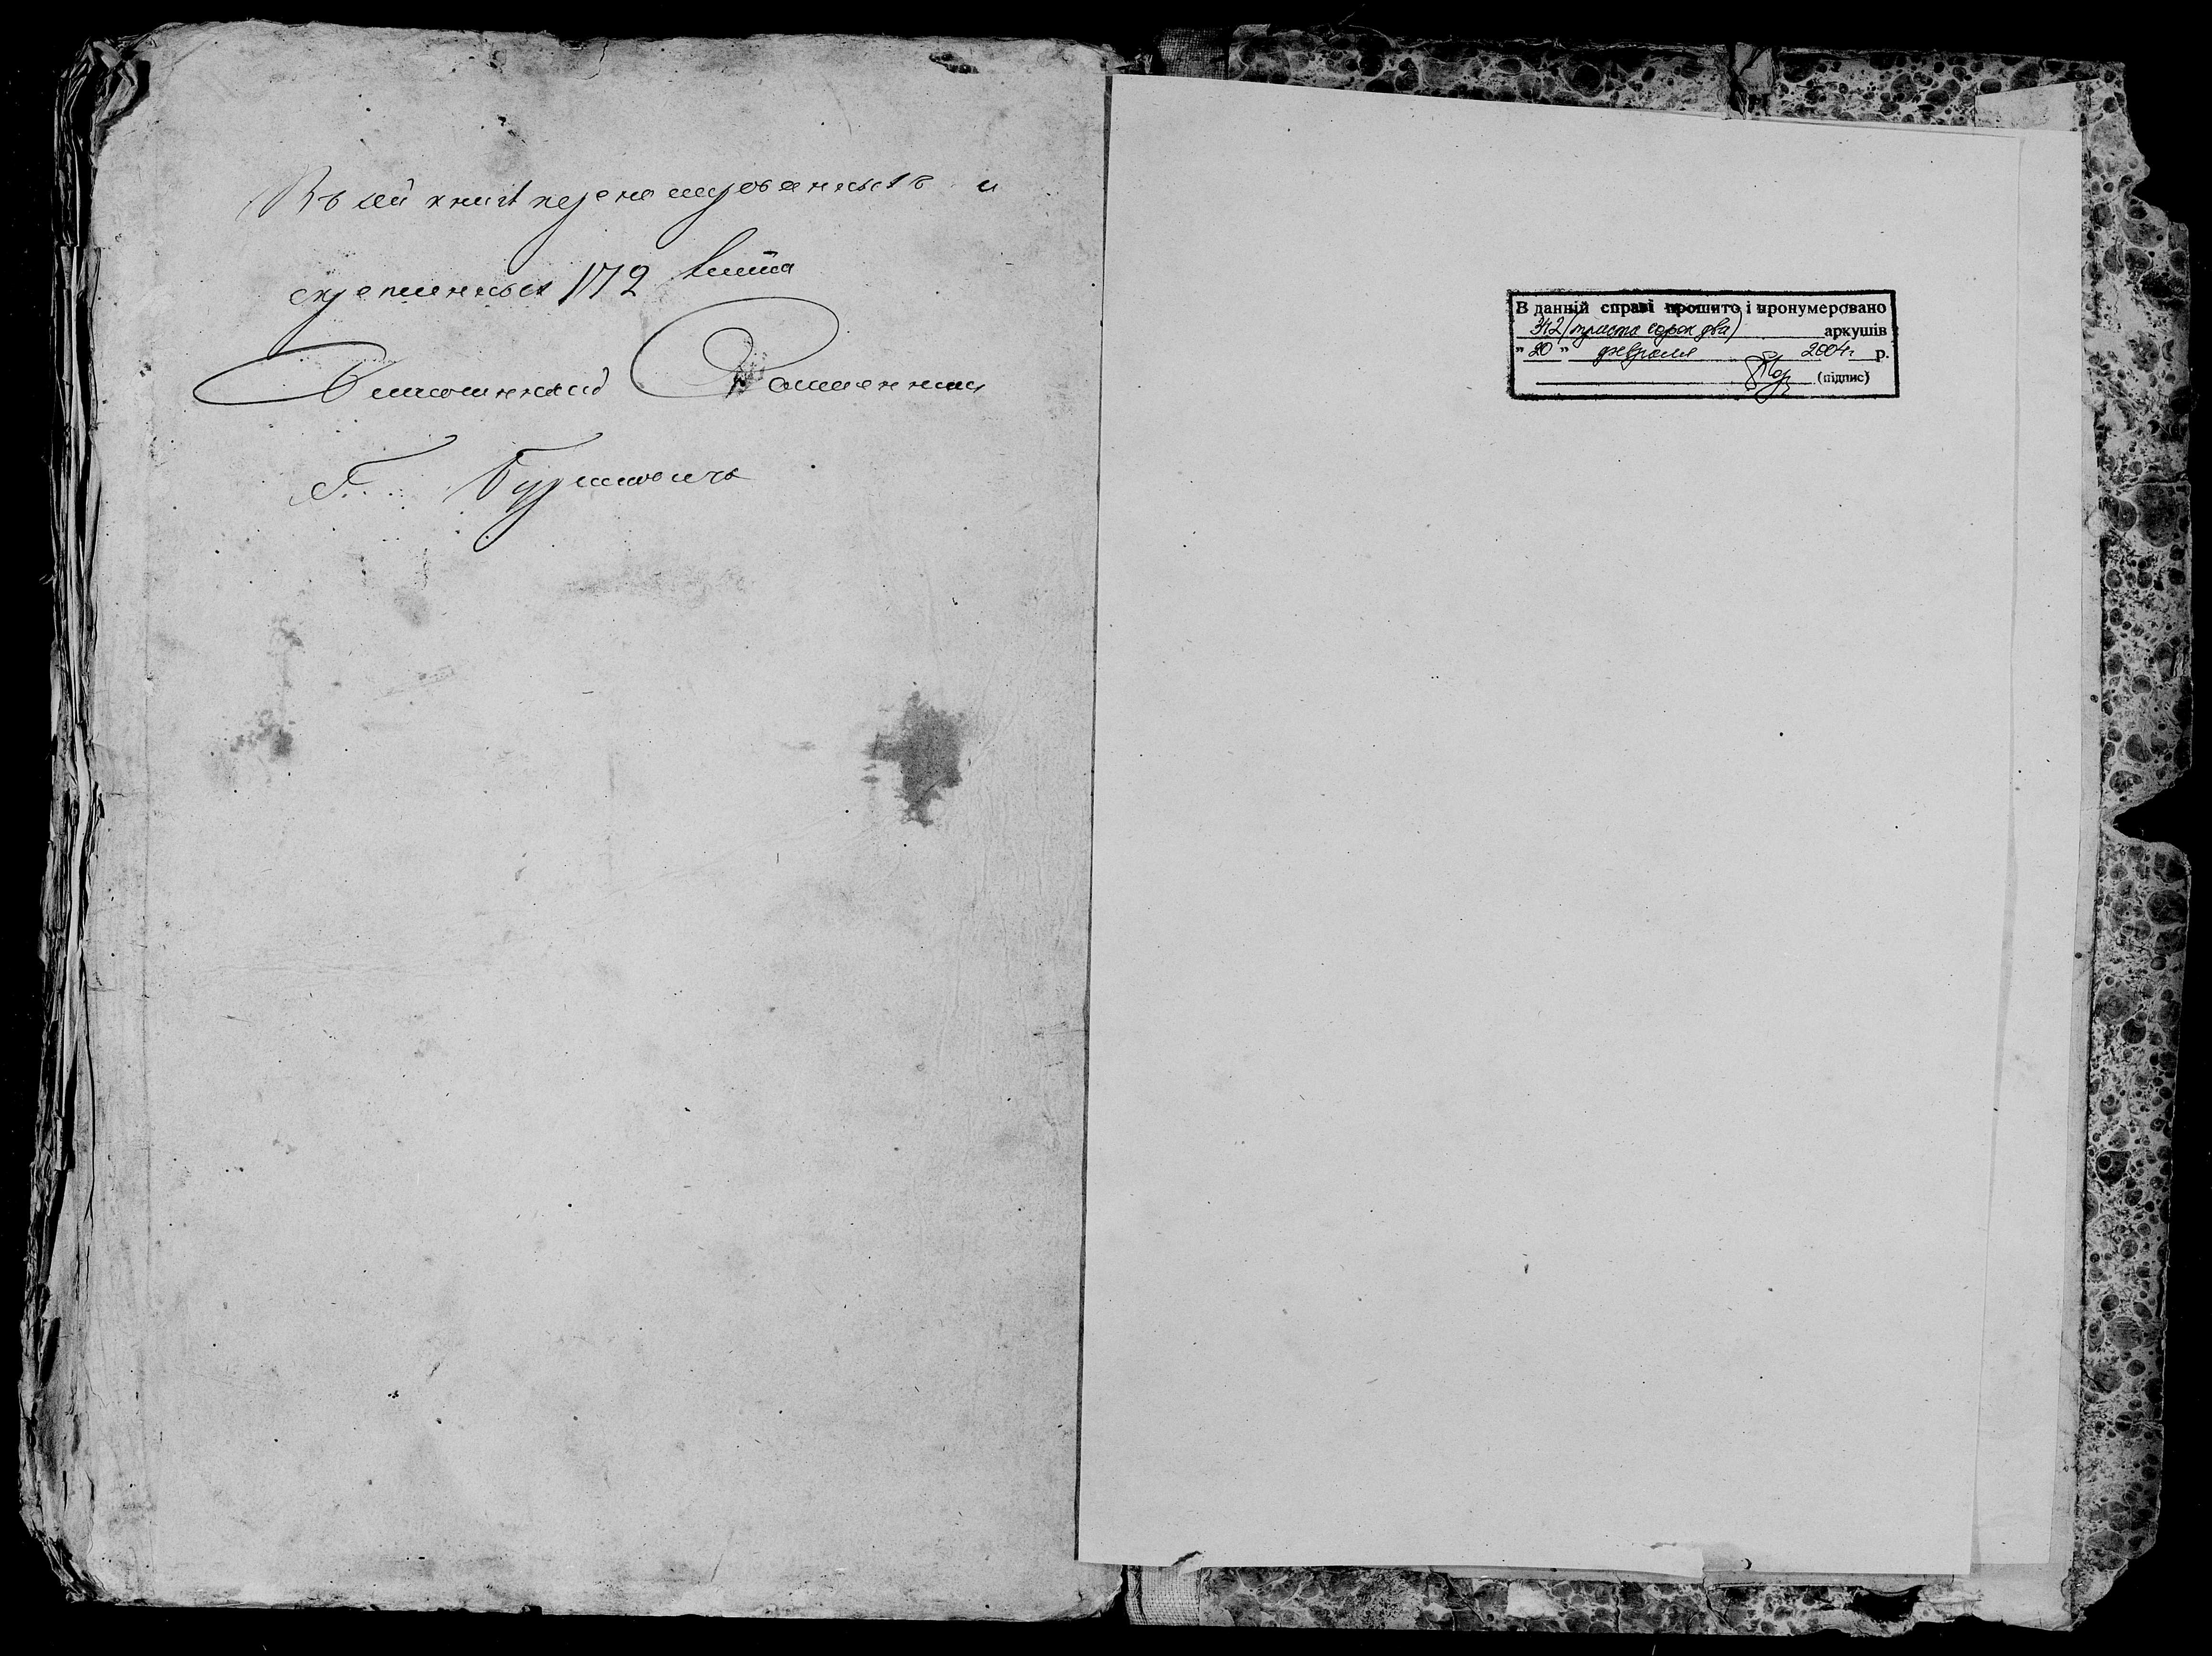 Въ сей книгѣ перенумерованныхъ и
скрепленныхъ 172 листа
Священникъ
Г. Буримовичъ
В данній справі прошито і пронумеровано
342 (триста сорок два) аркушів
" 20 " февраля 2004г. р.
(підпис)